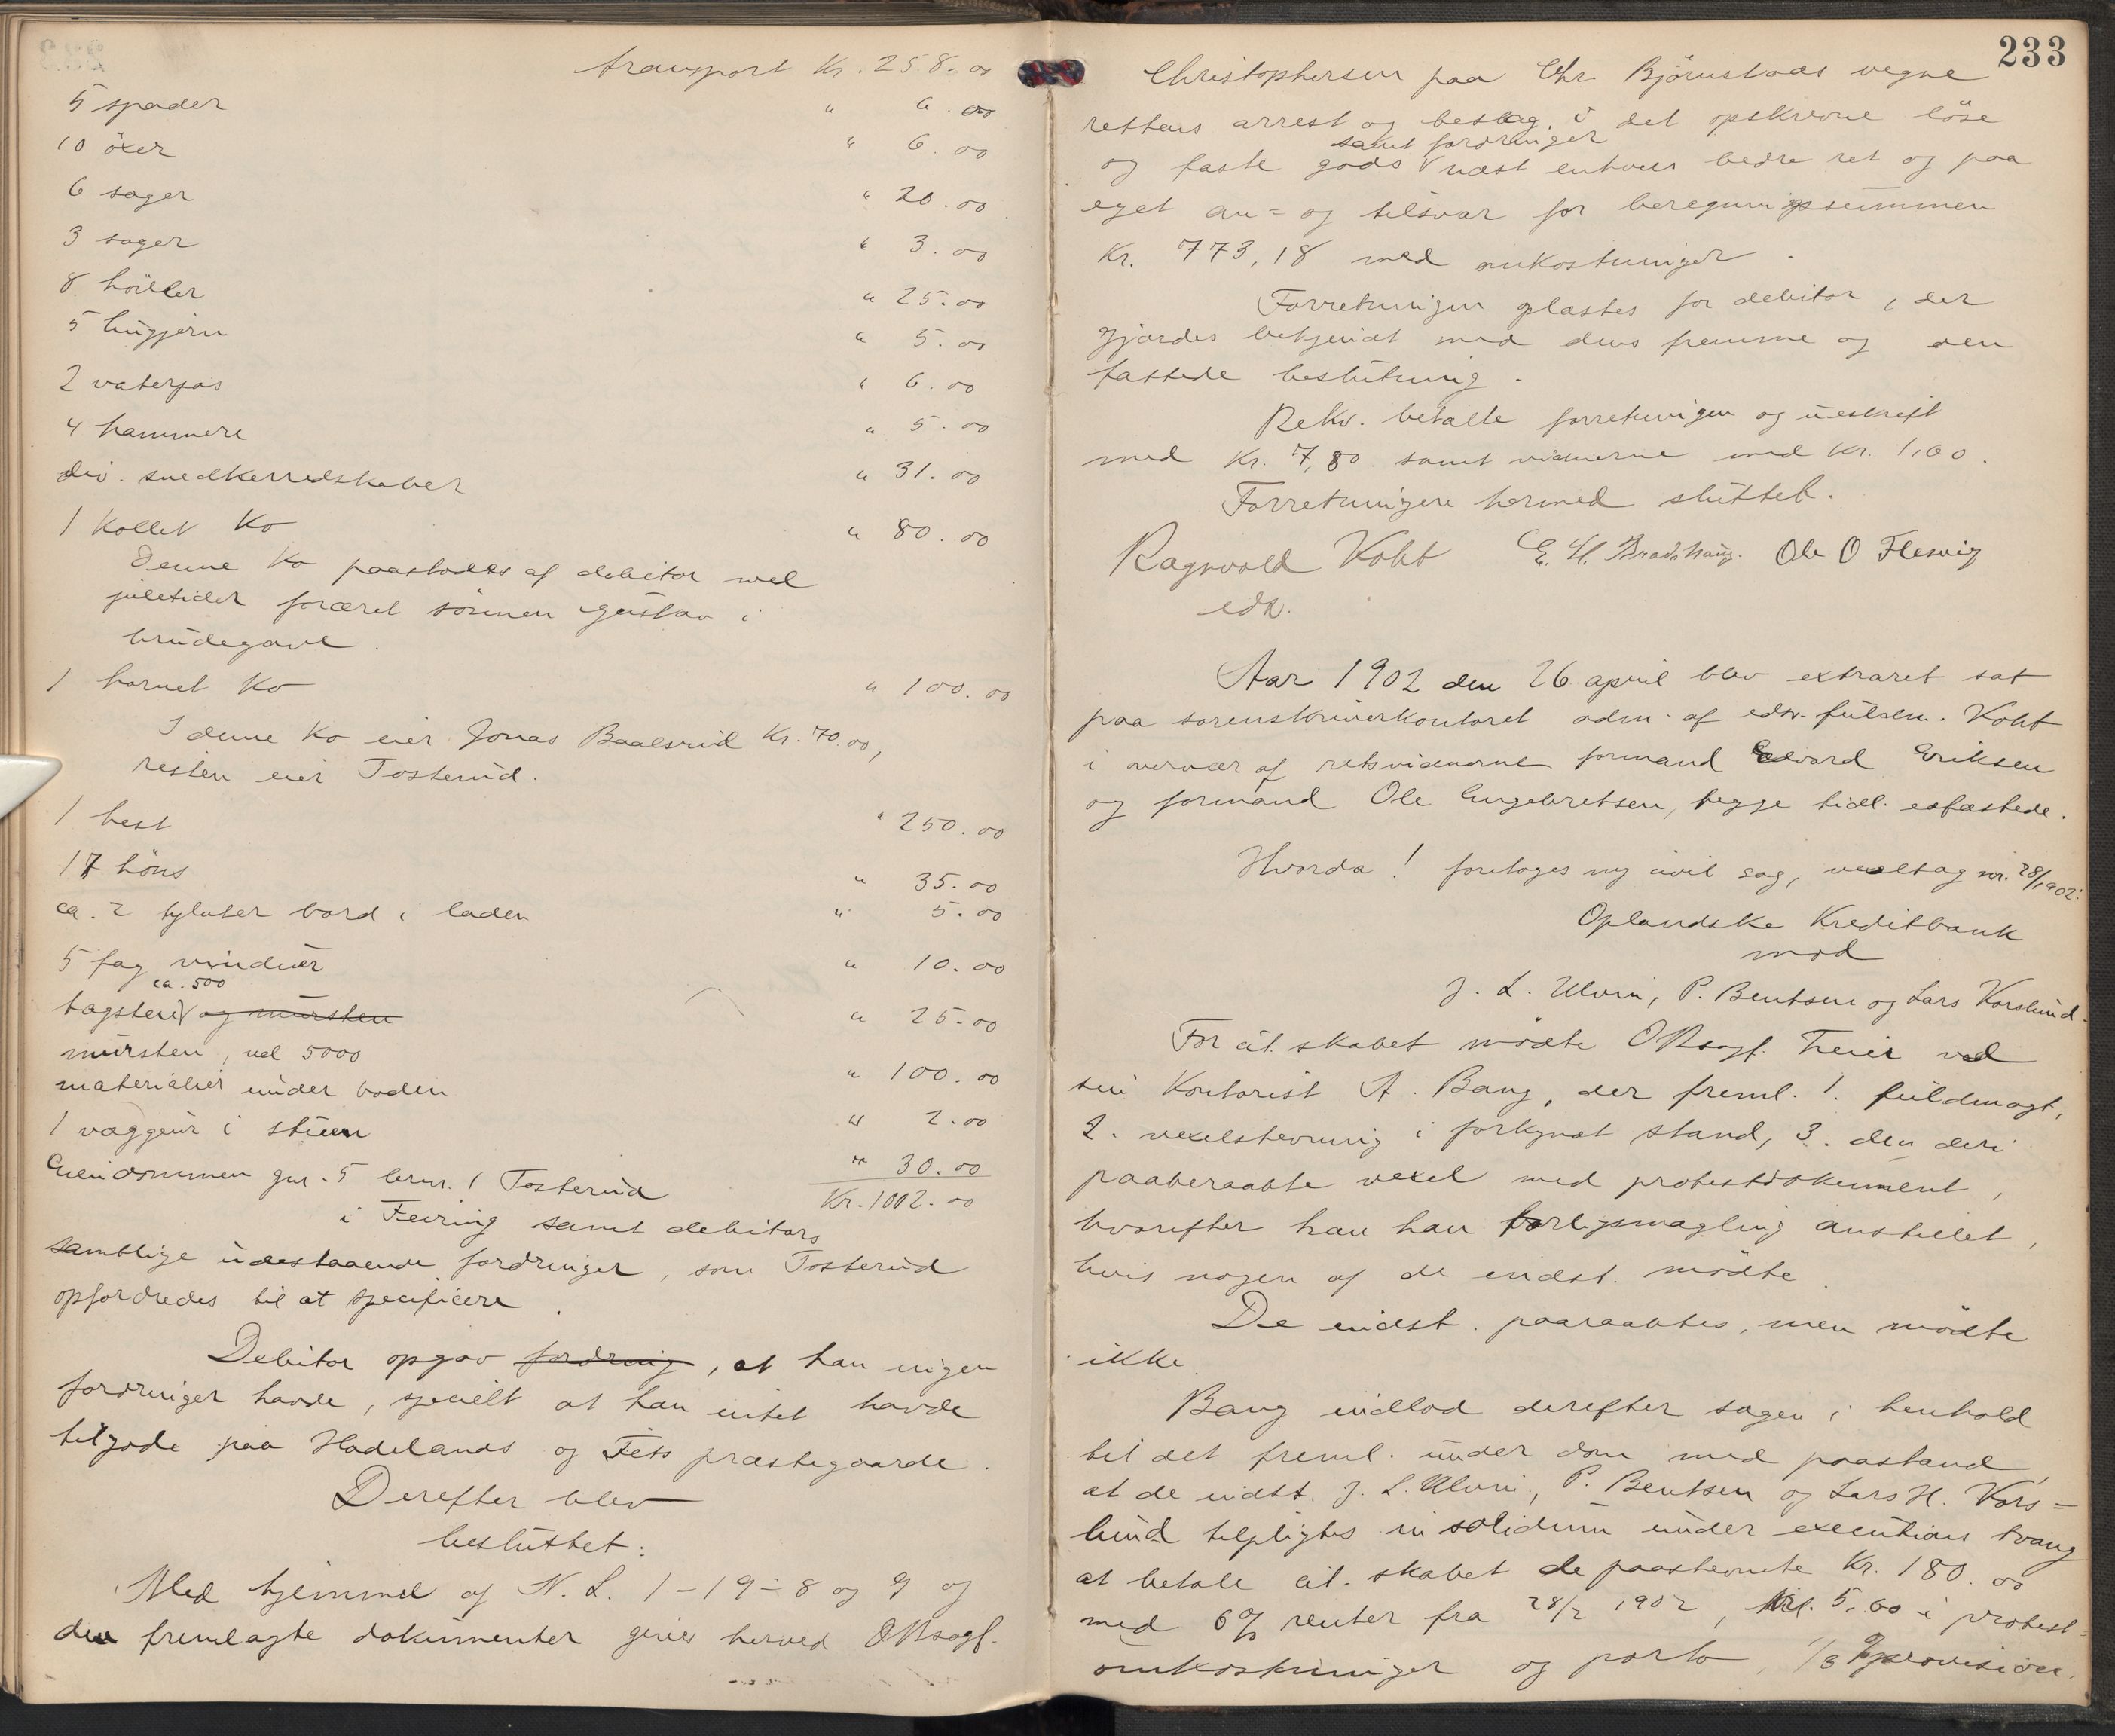 transport Kr. 258.00
5 spader " 6.00
10 öxer " 6.00
6 sager " 20.00
3 sager " 3.00
8 höiler " 25.00
5 hugjern " 5.00
2 vaterpas " 6.00
4 hammere " 5.00
div. snedkerredskaber " 31.00
1 kollet ko " 80.00
Denne ko paastodes af debitor ved
juletider foræret sönnen Gustav i
brudegave.
1 hornet ko " 100.00
I denne ko eier Jonas Baalsrud Kr. 70.00,
resten eier Tosterud.
1 hest " 250.00
17 höns " 35.00
ca. 2 tylvter bord i laden " 5.00
5 fag vinduer " 10.00
ca. 500
tagsten og mursten " 25.00
mursten, vel 5000 " 100.00
materialier under boden " 2.00
1 væggeur i stuen " 30.00
Kr. 1002.00
Eiendommen gnr. 5 brnr. 1 Tosterud
i Feiring samt debitors
samtlige udestaaende fordringer, som Tosterud
opfordredes til at specificere.
Debitor opgav fordring, at han ingen
fordringer havde, specielt at han intet havde
tilgode paa Hadelands og Fets præstegaarde.
Derefter blev
besluttet:
Med hjemmel af N. L. 1-19-8 og 9 og
de fremlagte dokumenter gives herved ORsagf.
233
Christophersen paa Chr. Björnstads vegne
rettens arrest og beslag i det opskrevne löse
samt fordringer
og faste gods næst enhvers bedre ret og paa
eget an= og tilsvar for beregningssummen
Kr. 773,18 med omkostninger.
Forretningen oplæstes for debitor, der
gjordes bekjendt med dens fremme og den
fattede beslutning.
Rekv. betalte forretningen og udskrift
med Kr. 7,80 samt vidnerne med Kr. 1,60.
Forretningen hermed sluttet.
Ragnvald Koht E. H. Brodshaug. Ole O Flesvig
edsv.
Aar 1902 den 26 april blev extraret sat
paa sorenskriverkontoret adm. af edsv. fuldm. Koht
i overvær af retsvidnerne formand Edvard Eriksen
og formand Ole Engebretsen, begge tidl. edfæstede.
Hvorda! foretoges ny civil sag, vexelsag nr. 28/1902:
Oplandske Kreditbank
mod
J. L. Ulvin, P. Bentsen og Lars Korslund.
For cit. skabet mödte ORsagf. Thuer ved
sin kontorist A. Bang, der freml. 1. fuldmagt,
2. vexelstevning i forkyndt stand, 3. den deri
paaberaabte vexel med protestdokument,
hvorefter han han forligsmægling anstillet,
hvis nogen af de indst. mödte.
De indst. paaraabtes, men mödte
ikke.
Bang indlod derefter sagen i henhold
til det freml. under dom med paastand,
at de indst. J. L. Ulvin, P. Bentsen og Lars H. Kors=
lund tilpligtes in solidum under executions tvang
at betale cit. skabet de paastevnte Kr. 180.00
med 6% renter fra 28/2 1902, Kr. 5.60 i protest=
omkostninger og porto, 1/3 % provision.